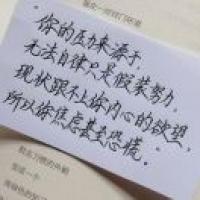 “你的压力来源于,
无法自律只是假装努力,
现状跟不上你内心的欲望,
所以你焦虑甚至恐慌。”